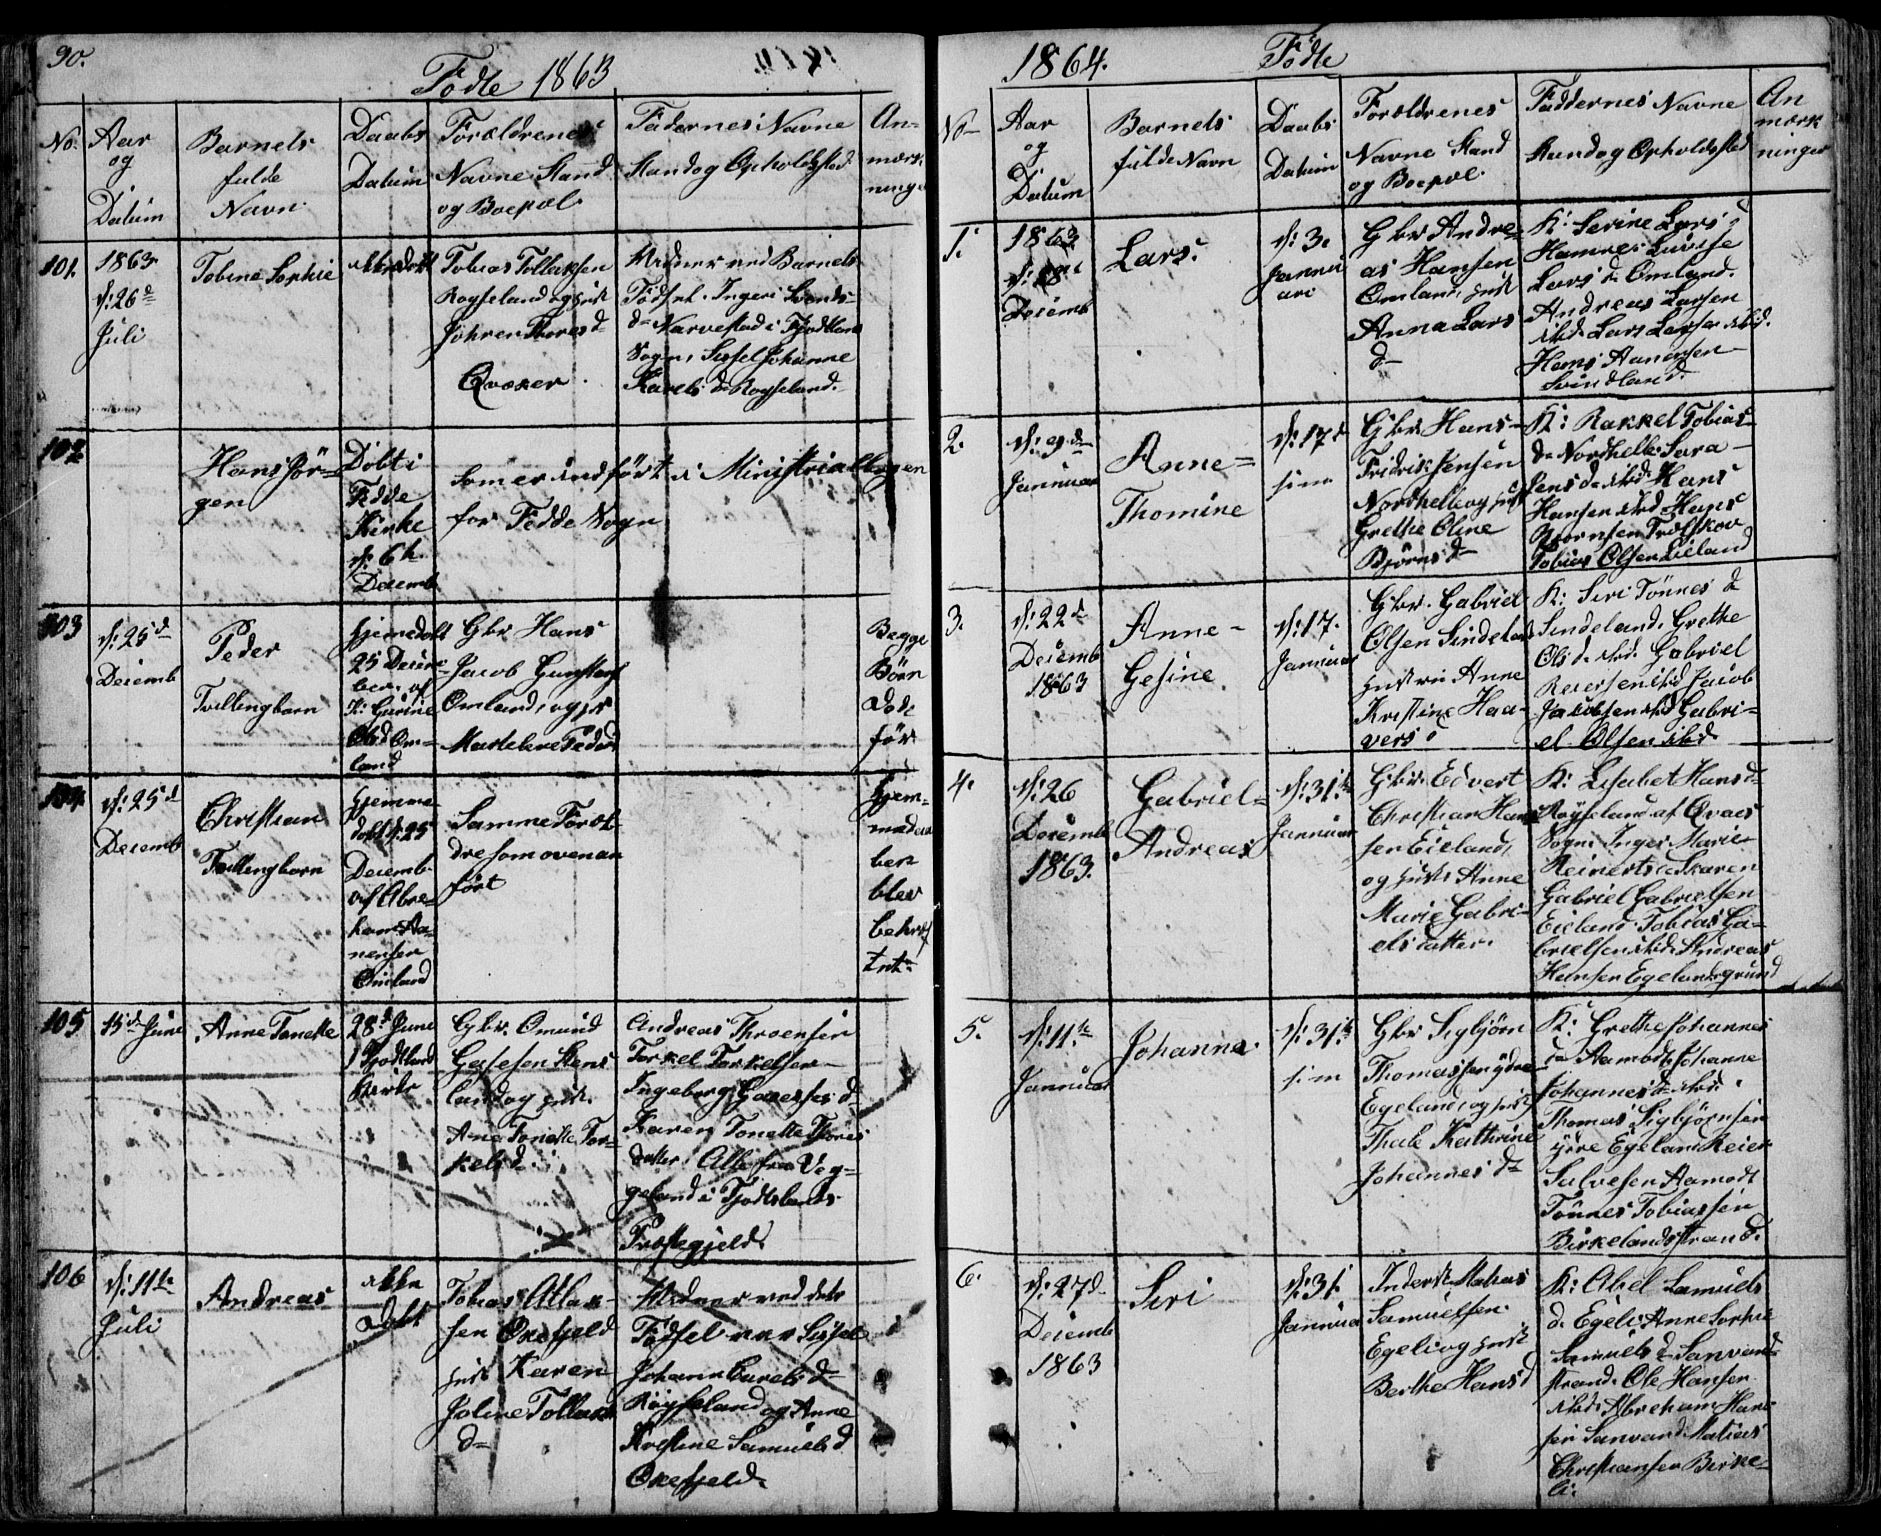 90.
Födte 1863
No.
Aar
og
Datum
Barnets
fulde
Navn
Daabs
Datum
Forældrenes
Navne Stand
og Boepæl
Faddernes Navne
Stand og Opholdssted
An-
mærk
ninger
101.
1863
d: 26de
Juli
Tobine Sophie
ikke døbt
Tobias Tollaksen
Røyseland og hust
Qvæker
Vidner ved Barnets
Födsel. Ingeri
Narvestad i Fjotland
Sogn, Sissel Johanne
Karels d Røyseland.
102
Hans Jör-
gen
Döbt i
Fedde
Kirke
d: 6te
Decemb
Som er indført i Ministrialbogen
for Fedde Sogn
103
d: 25d
Decemb
Peder
Tvillingbarn
hjemedøbt
25 Decem-
ber. af
K: Gurine
Ols d Om-
land
Gbr Hans
Jacob
Omland, og
Begge
Börn
Döde
för
104
d: 25d
Decemb
Christian
Tvillingbarn
hjemme
døbt d: 25
Decemb
af Abra-
ham Aa-
nensen
Omland
Samme Foræl-
dre som ovenan
fört
hjem-
medaa
ben
blev
bekræf
tet
105
15de Juni
Anne Tonette
28d Juni
i Fjotland
Kirke
Gbr. Omund
land og hust.
Ane Tonette Tor-
kels d
Andreas
Torkel Torkelsen
Ingeborg
Karen Tonette
datter. Alle fra Veg-
geland i Fjotlands
Præstegjeld.
106
d: 11te
Juli
Andreas
ikke
Döbt
Tobias Atlak-
sen Oxefjeld
hust Karen
Joline Tollaks
d
Vidner ved dets
Födsel var Sissel
Johanne Karels d
Röyseland og Anne
Kristine Samuels d
Oxefjeld.
1864.
Födte
No
Aar
og
Datum
Barnets
fulde Navn
Daabs
Datum
Forældrenes
Navne Stand
og Boepæl
Faddernes Navne
Stand og Opholdssted
An
mærk
ninger
1.
1863
Decemb
Lars.
d: 3.
Janu
ari
Gbr Andre-
as Hansen
Omland, hust
Anna Lars
d
K: Serine Lars d
Lars d Omland.
Andreas Larsen
ibid. Lars Larsen ibid.
Hans Aanensen
Svindland.
2.
d: 9de
Januar
Anne
Thomine
d: 17d
sim
Gbr. Hans
Fridrik Jensen
Nordhelle og hust
Grethe Oline
Björns d
K: Rakkel Tobias
d Nordhelle Sara
Jens d ibid Hans
Hansen ibid Hans
Björnsen
Tobias Olsen Eieland
3.
d: 22d
Decemb
1863
Anne
Gesine
d: 17.
Januar
Gbr. Gabriel
Olsen Sindeland
hustru Anne
Kristine Haa-
vers d
K: Siri Tönnes d
Sindeland. Grethe
Ols d ibid. Gabriel
Reiersen ibid Jacob
Jakobsen ibid Gabri-
el Olsen ibid
4.
d: 26
Decemb
1863.
Gabriel
Andreas
d: 31te
Januar
Gbr. Edvert
Christian Han
sen Eieland,
og hustr Anne
Marie Gabri-
elsdatter.
K: Lisabet Hans d
Röyseland af Qvaes
Sogn Inger Marie
Reinerts d Skaren
Gabriel Gabrielsen
Eieland Tobias Ga-
brielsen ibid. Andreas
Hansen Egelandsgrund
5.
d: 11te
Januar
Johanne
d: 31te
sim
Gbr Sigbjörn
Thomassen ydre
Egeland, og hust
Thale Kathrine
Johannes d
K: Grethe Johannes
d Aamodt Johanne
Johannes d ibid.
Thomas Sigbjörnsen
ydre Egeland Reier
Salvesen Aamodt
Tönnes Tobiassen
Birkelandsstrand.
6.
d: 27d
Decemb
1863
Siri
d: 31
Januar
Inderst Matias
Samuelsen
Egeli og hust
Berthe Hans d
K: Abel Samuels
d. Egeli. Anne Sophie
Samuels d Sanvand-
strand. Ole Hansen
ibid. Abraham Han-
sen Sanvand Matias
Christiansen Birke-
li.